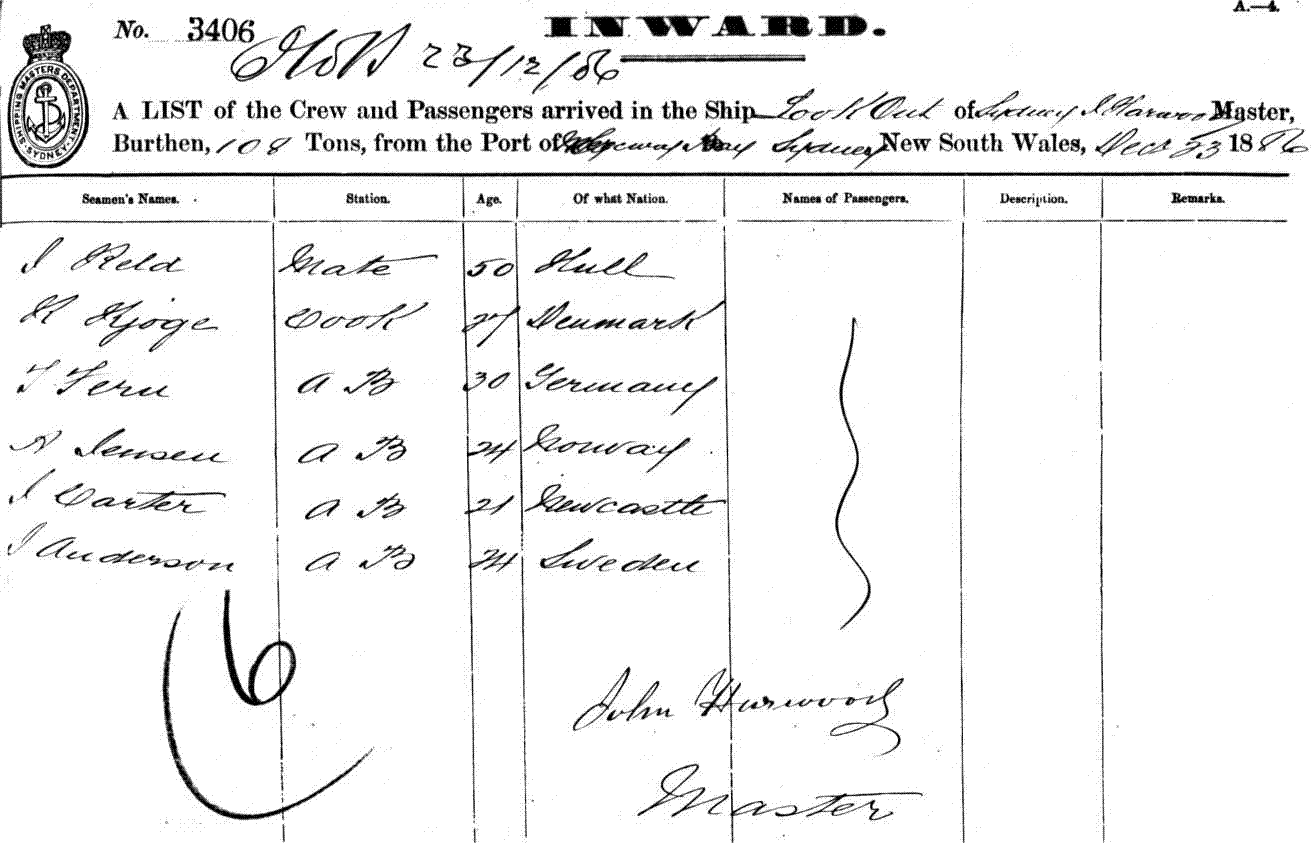 A.—4.
No. 3406 INWARD.
23/12/86
SHIPPING MASTERS DEPARTMENT
SYDNEY
A LIST of the Crew and Passengers arrived in the Ship Look Out of Sydney J Harwood Master,
Burthen, 108 Tons, from the Port of Bay Sydney New South Wales, Decr 23 1886
Seamen's Names. Station. Age. Of what Nation. Names of Passengers. Description. Remarks.
J Reld Mate 50 Hull
K Kjoge Cook 27 Denmark
T Fern A B 30 Germany
A Jensen A B 24 Norway
J Carter A B 21 Newcastle
J Anderson A B 24 Sweden
6
John Harwood
Master